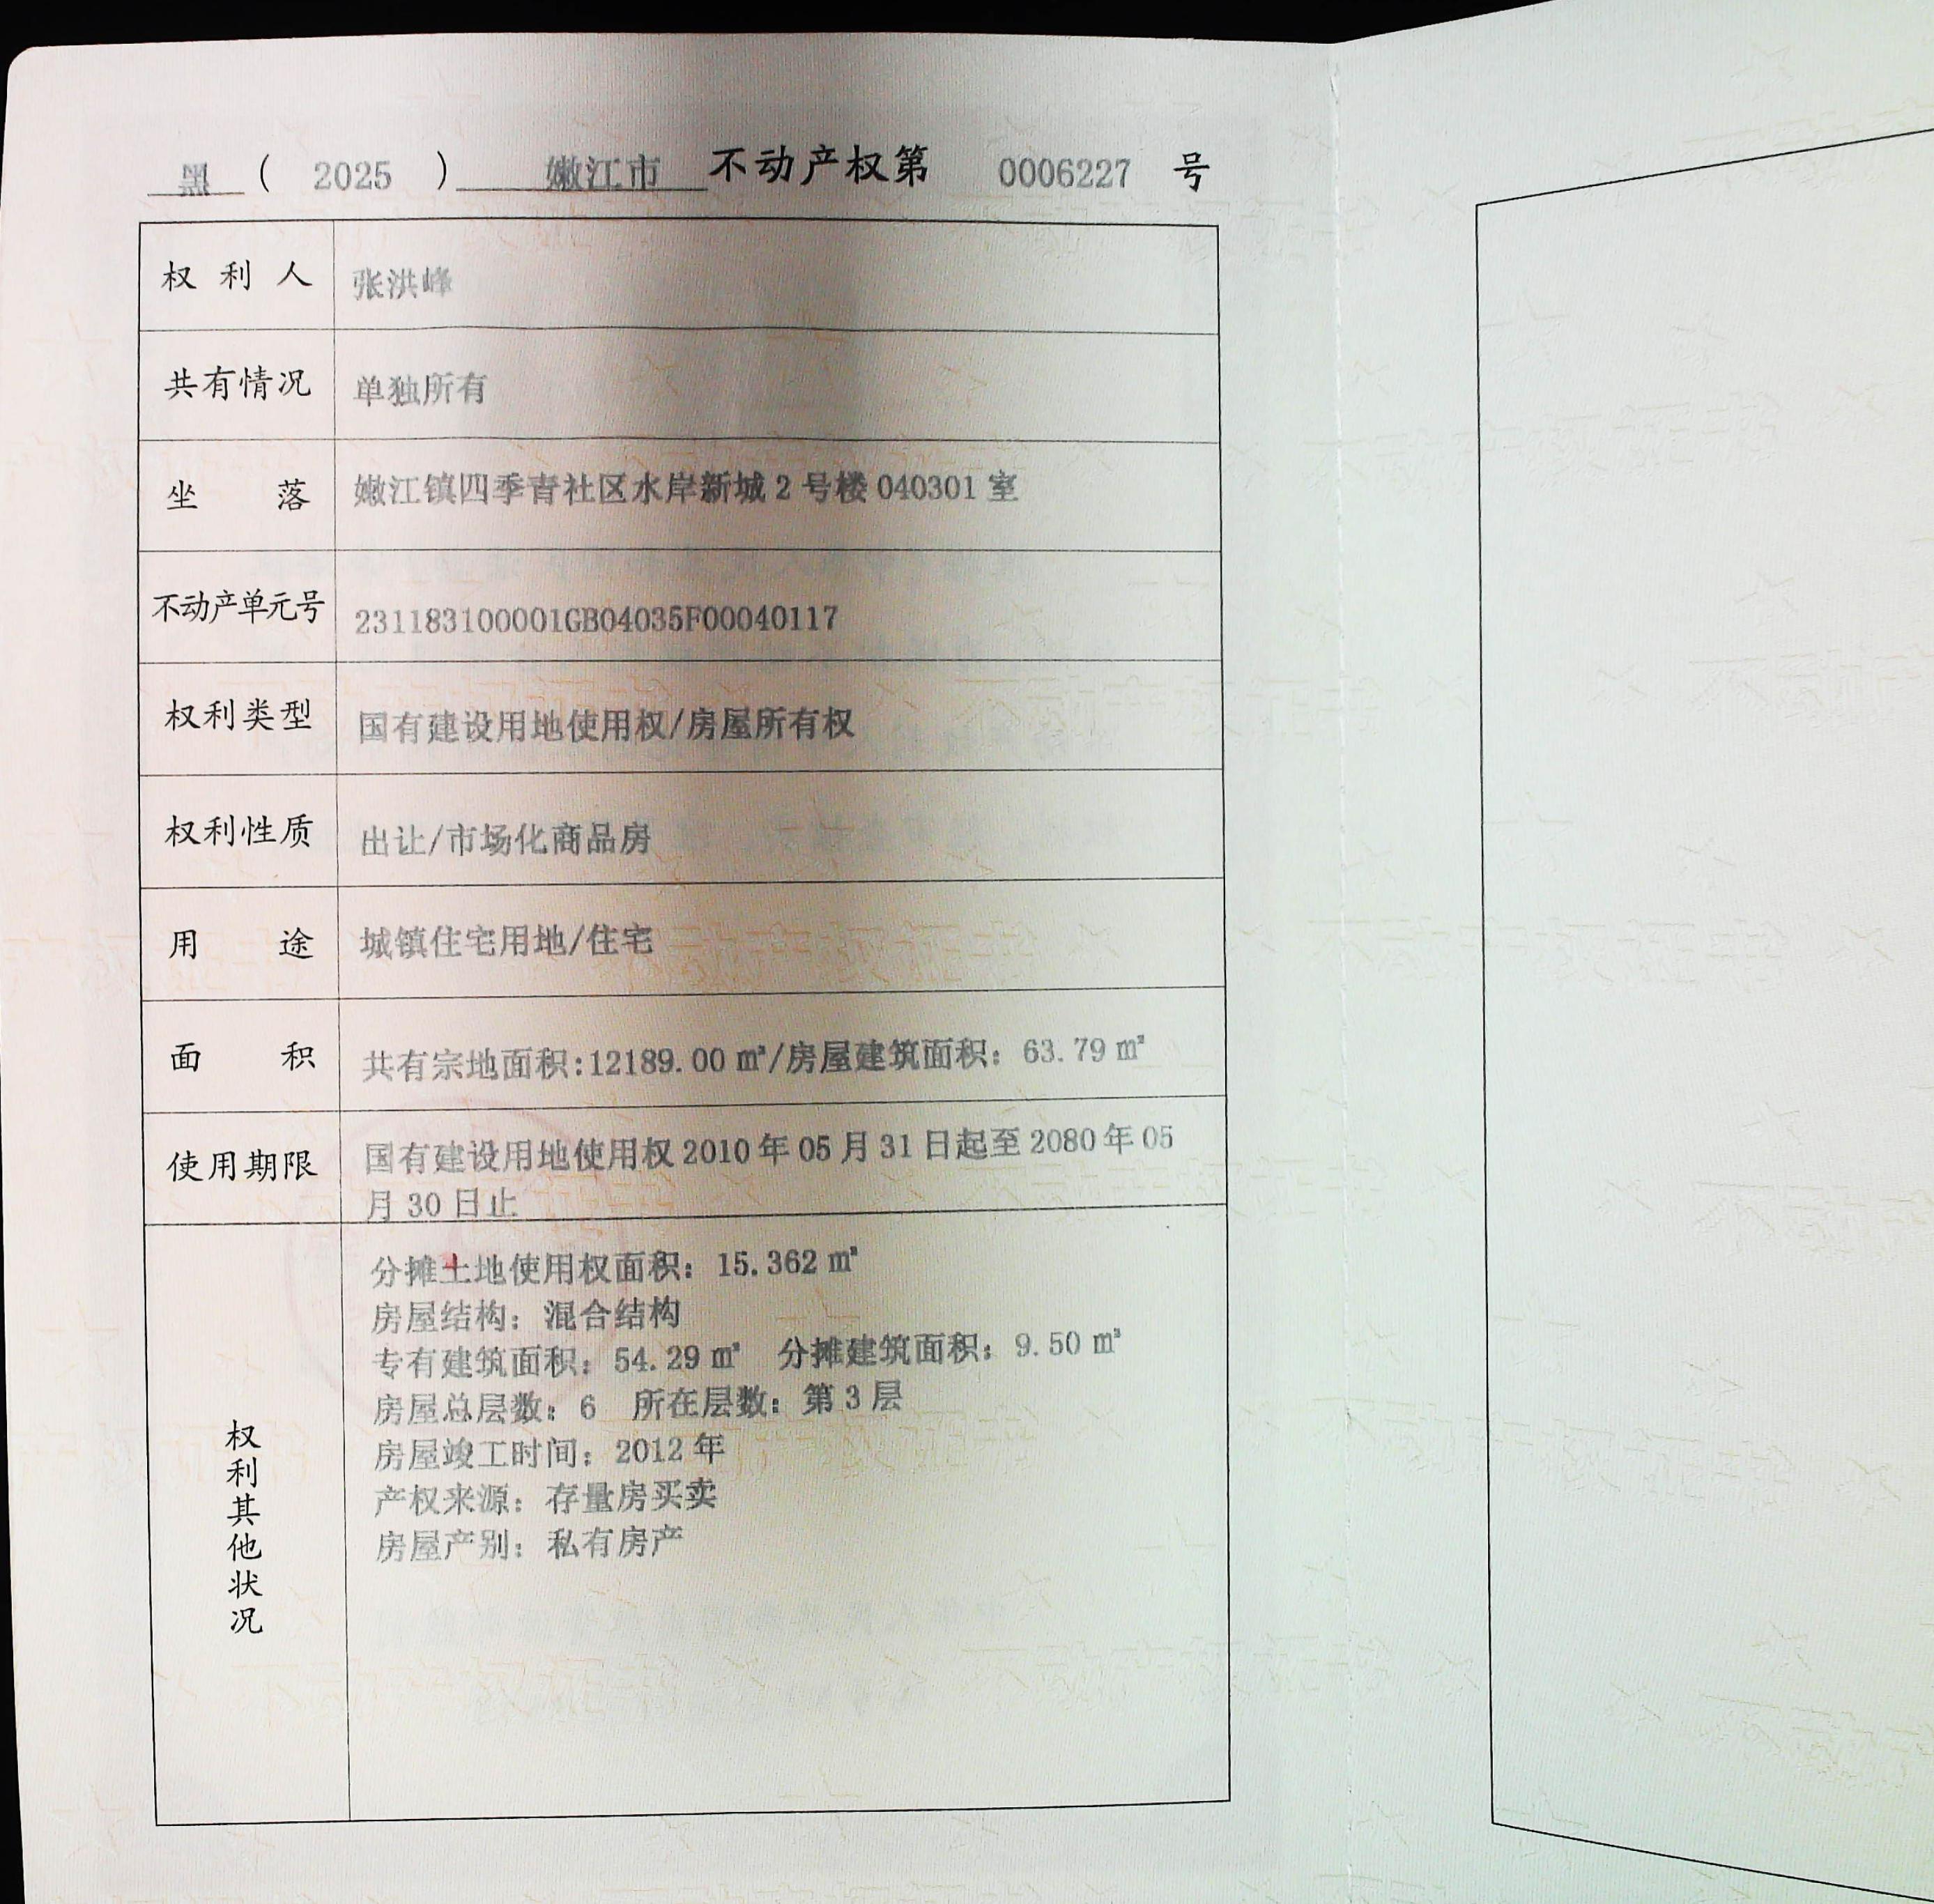 黑 ( 2025 ) 嫩江市 不动产权第 0006227 号
权利人 张洪峰
共有情况 单独所有
坐落 嫩江镇四季青社区水岸新城2号楼040301室
不动产单元号 231183100001GB04035F00040117
权利类型 国有建设用地使用权/房屋所有权
权利性质 出让/市场化商品房
用途 城镇住宅用地/住宅
面积 共有宗地面积:12189.00㎡/房屋建筑面积：63.79㎡
使用期限 国有建设用地使用权2010年05月31日起至2080年05
月30日止
权利其他状况
分摊土地使用权面积：15.362㎡
房屋结构：混合结构
专有建筑面积：54.29㎡ 分摊建筑面积：9.50㎡
房屋总层数：6 所在层数：第3层
房屋竣工时间：2012年
产权来源：存量房买卖
房屋产别：私有房产